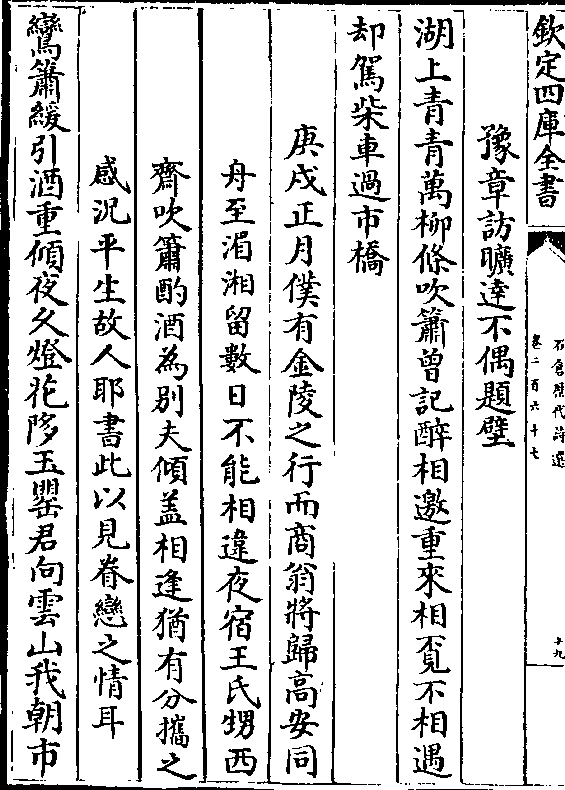 欽定四庫全書
石倉歴代詩選
卷二百六十七
十九
豫章訪曠達不偶題壁
湖上青青萬柳條吹簫曾記醉相邀重來相覓不相遇
却駕柴車過市橋
庚戌正月僕有金陵之行而商翁將歸高安同
舟至湄湘留數日不能相違夜宿王氏甥西
齋吹簫酌酒為别夫傾盖相逢猶有分攜之
感况平生故人耶書此以見眷戀之情耳
鸞簫緩引酒重傾夜久燈花陊玉罌君向雲山我朝市